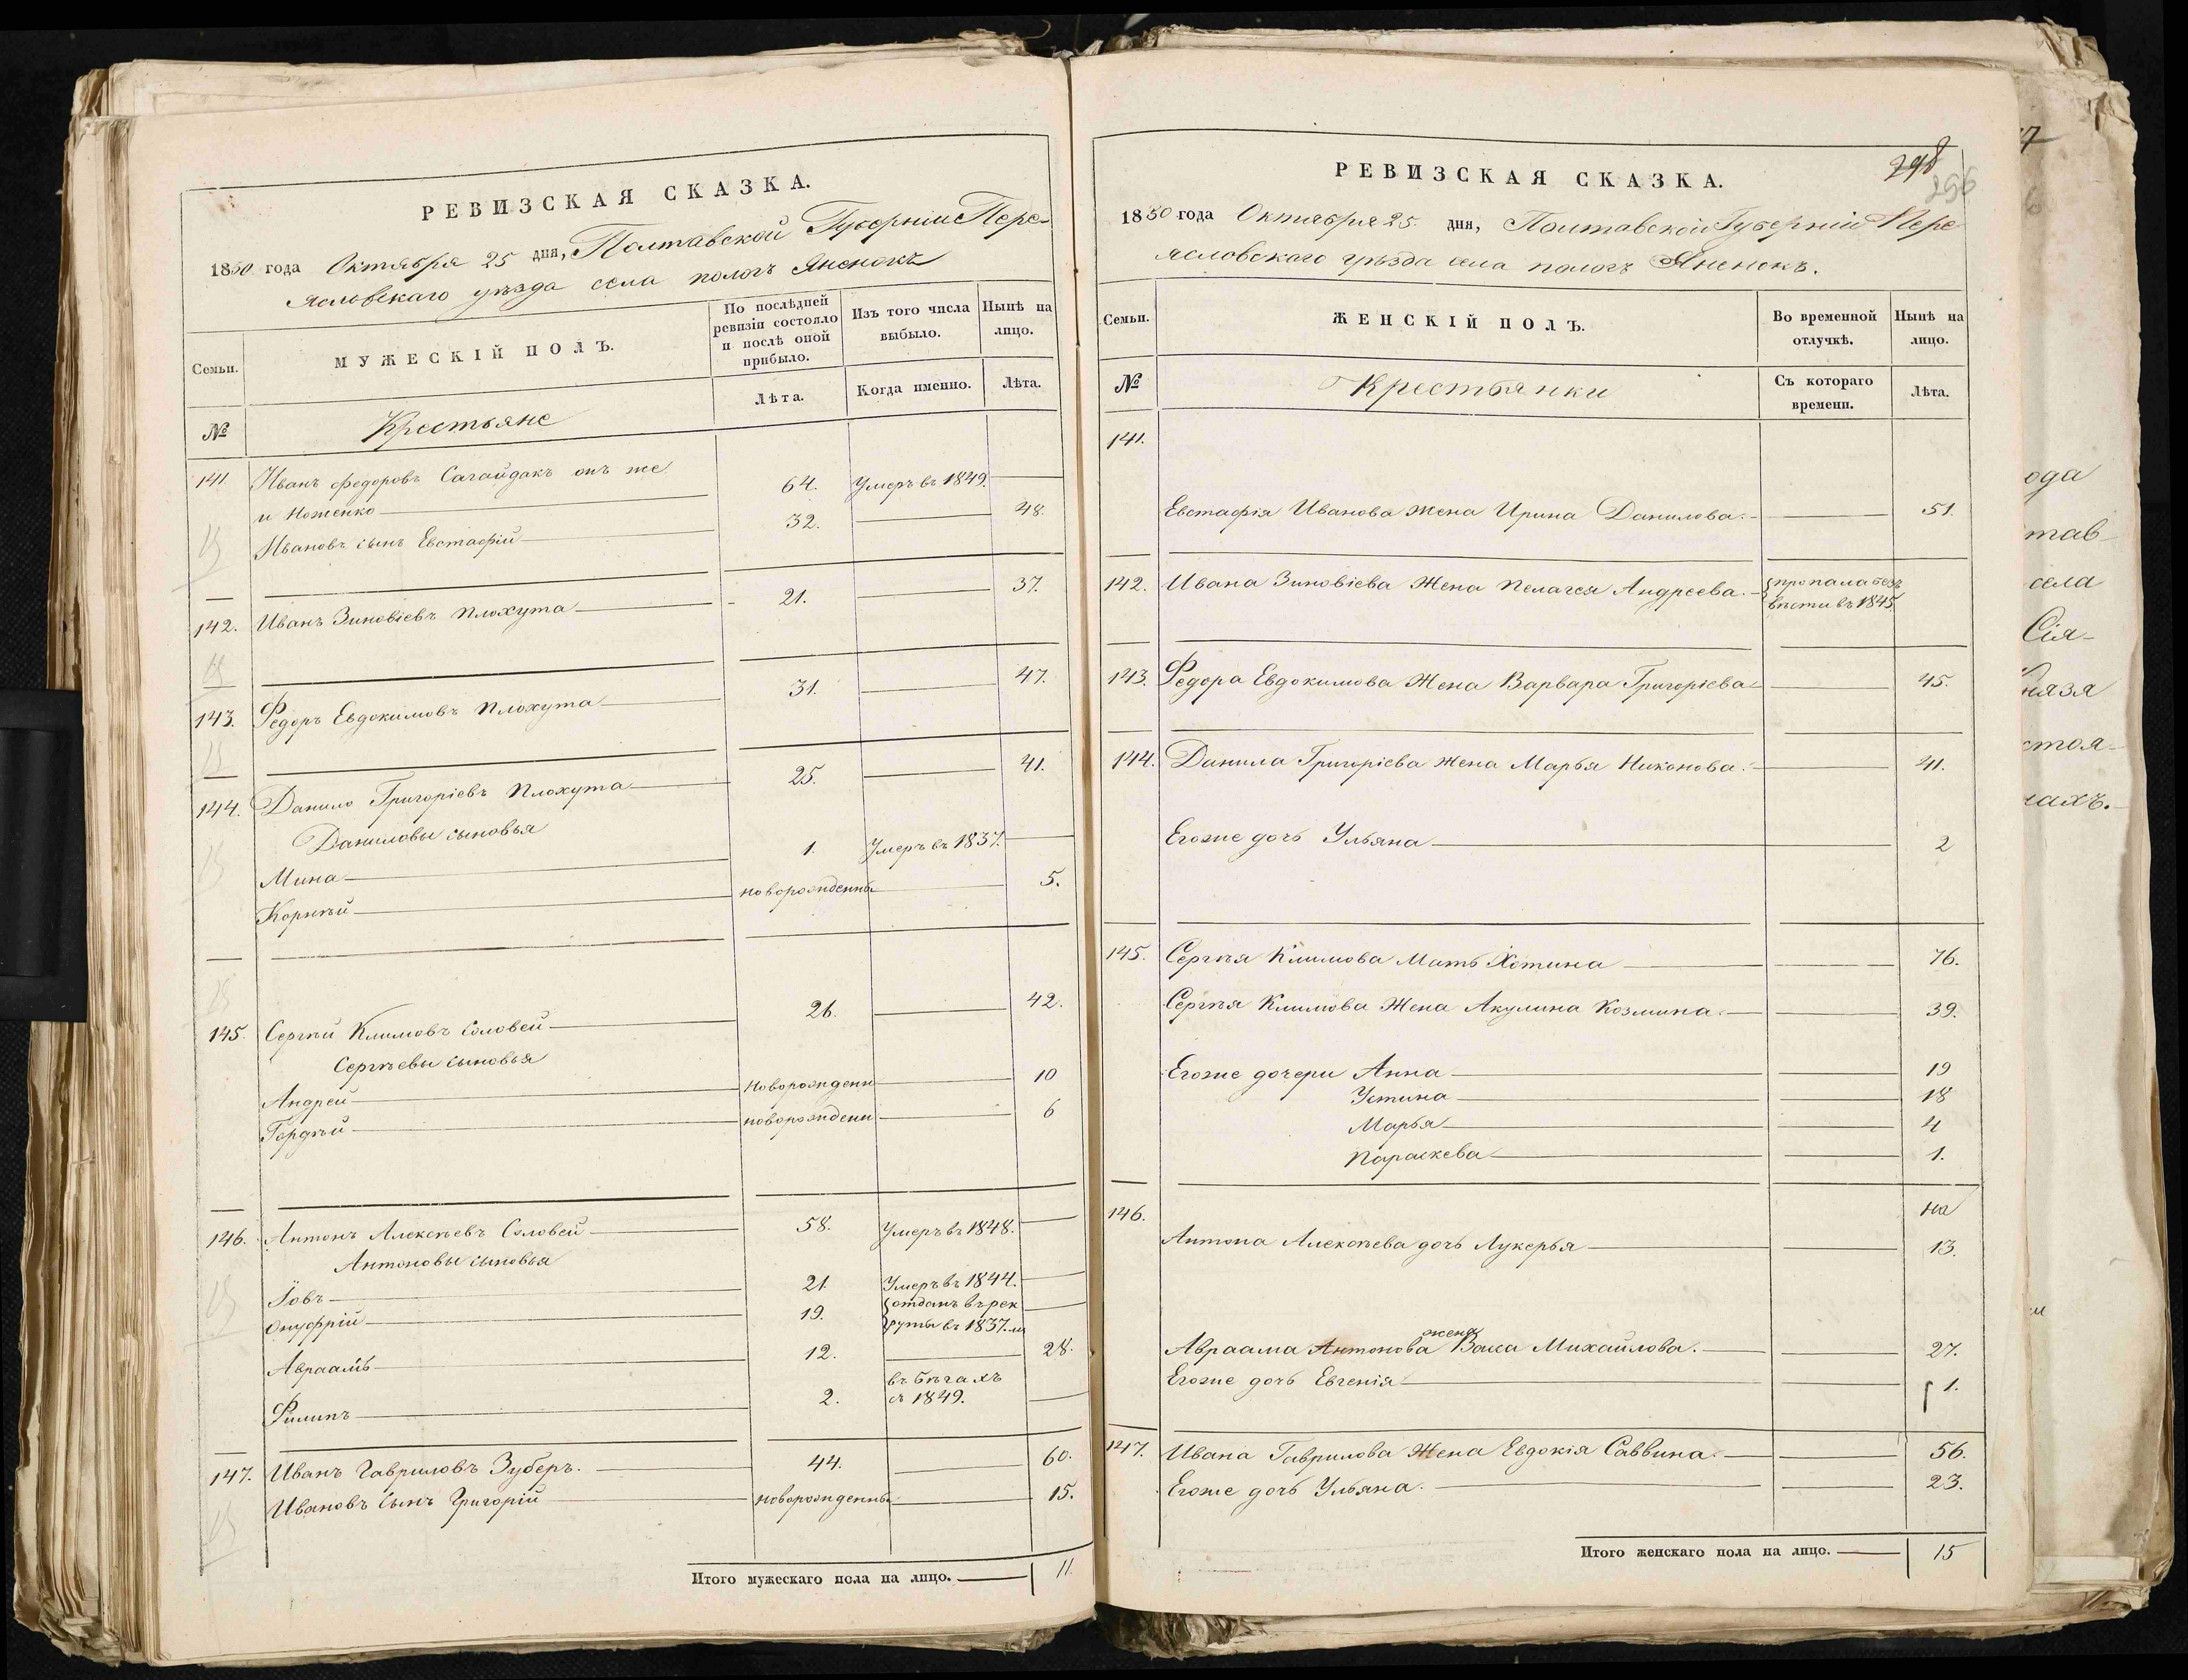 РЕВИЗСКАЯ СКАЗКА.
1850 года Октября 25 дня, Полтавской Губерніи Пере-
яславскаго уѣзда села пологъ Яненокъ
Семьи.
МУЖЕСКІЙ ПОЛЪ.
По послѣдней
ревизіи состояло
и послѣ оной
прибыло.
Изъ того числа
выбыло.
Нынѣ на
лицо.
№
Крестьяне
Лѣта.
Когда именно.
Лѣта.
141 Иванъ Федоровъ Сагайдакъ онъ же
и Ноженко 64. Умеръ въ 1849.
Ивановъ сынъ Евстафій 32. 48.
142. Иванъ Зиновіевъ Плохута 21. 37.
143. Федоръ Евдокимовъ Плохута 31. 47.
144. Данило Григоріевъ Плохута 25. 41.
Даниловы сыновья
Мина 1. Умеръ въ 1837.
Корнѣй новорожденны 5.
145. Сергѣй Климовъ Соловей 26. 42.
Сергѣевы сыновья
Андрей новорожденн 10
Гордѣй новорожденн 6
146. Антонъ Алексѣевъ Соловей 58. Умеръ въ 1848.
Антоновы сыновья
Іовъ 21. Умеръ въ 1844.
Онуфрій 19. отданъ въ рек
руты въ 1837.м
Авраамъ 12. 28.
Филипъ 2. въ бѣгахъ
съ 1849.
147. Иванъ Гавриловъ Зуберъ. 44. 60.
Ивановъ Сынъ Григорій новорожденны 15.
Итого мужескаго пола на лицо. 11.
298
296
РЕВИЗСКАЯ СКАЗКА.
1850 года Октября 25. дня, Полтавской Губерніи Пере
ясловскаго уѣзда села пологъ Яненокъ.
Семьи.
ЖЕНСКІЙ ПОЛЪ.
Во временной
отлучкѣ.
Нынѣ на
лицо.
№
Крестьянки
Съ котораго
времени.
Лѣта.
141.
Евстафія Иванова жена Ирина Данилова. 51.
142. Ивана Зиновіева Жена Пелагея Андреева. пропала безъ
вѣсти въ 1845
143. Федора Евдокимова Жена Варвара Григоріева 45.
144. Данила Григоріева жена Марья Никонова. 41.
Егоже дочь Ульяна 2
145. Сергѣя Климова Мать Хотина 76.
Сергѣя Климова Жена Акулина Козмина. 39.
Егоже дочери Анна 19
Устина 18
Марья 4
Параскева 1.
146. на
Антона Алексѣева дочь Лукерья 13.
жена
Авраама Антонова Васса Михайлова. 27.
Егоже дочь Евгенія 1.
147. Ивана Гаврилова Жена Евдокія Саввина. 56.
Егоже дочь Ульяна. 23.
Итого женскаго пола на лицо. 15
ода
тав
села
Сія
нязя
стоя-
ахъ.